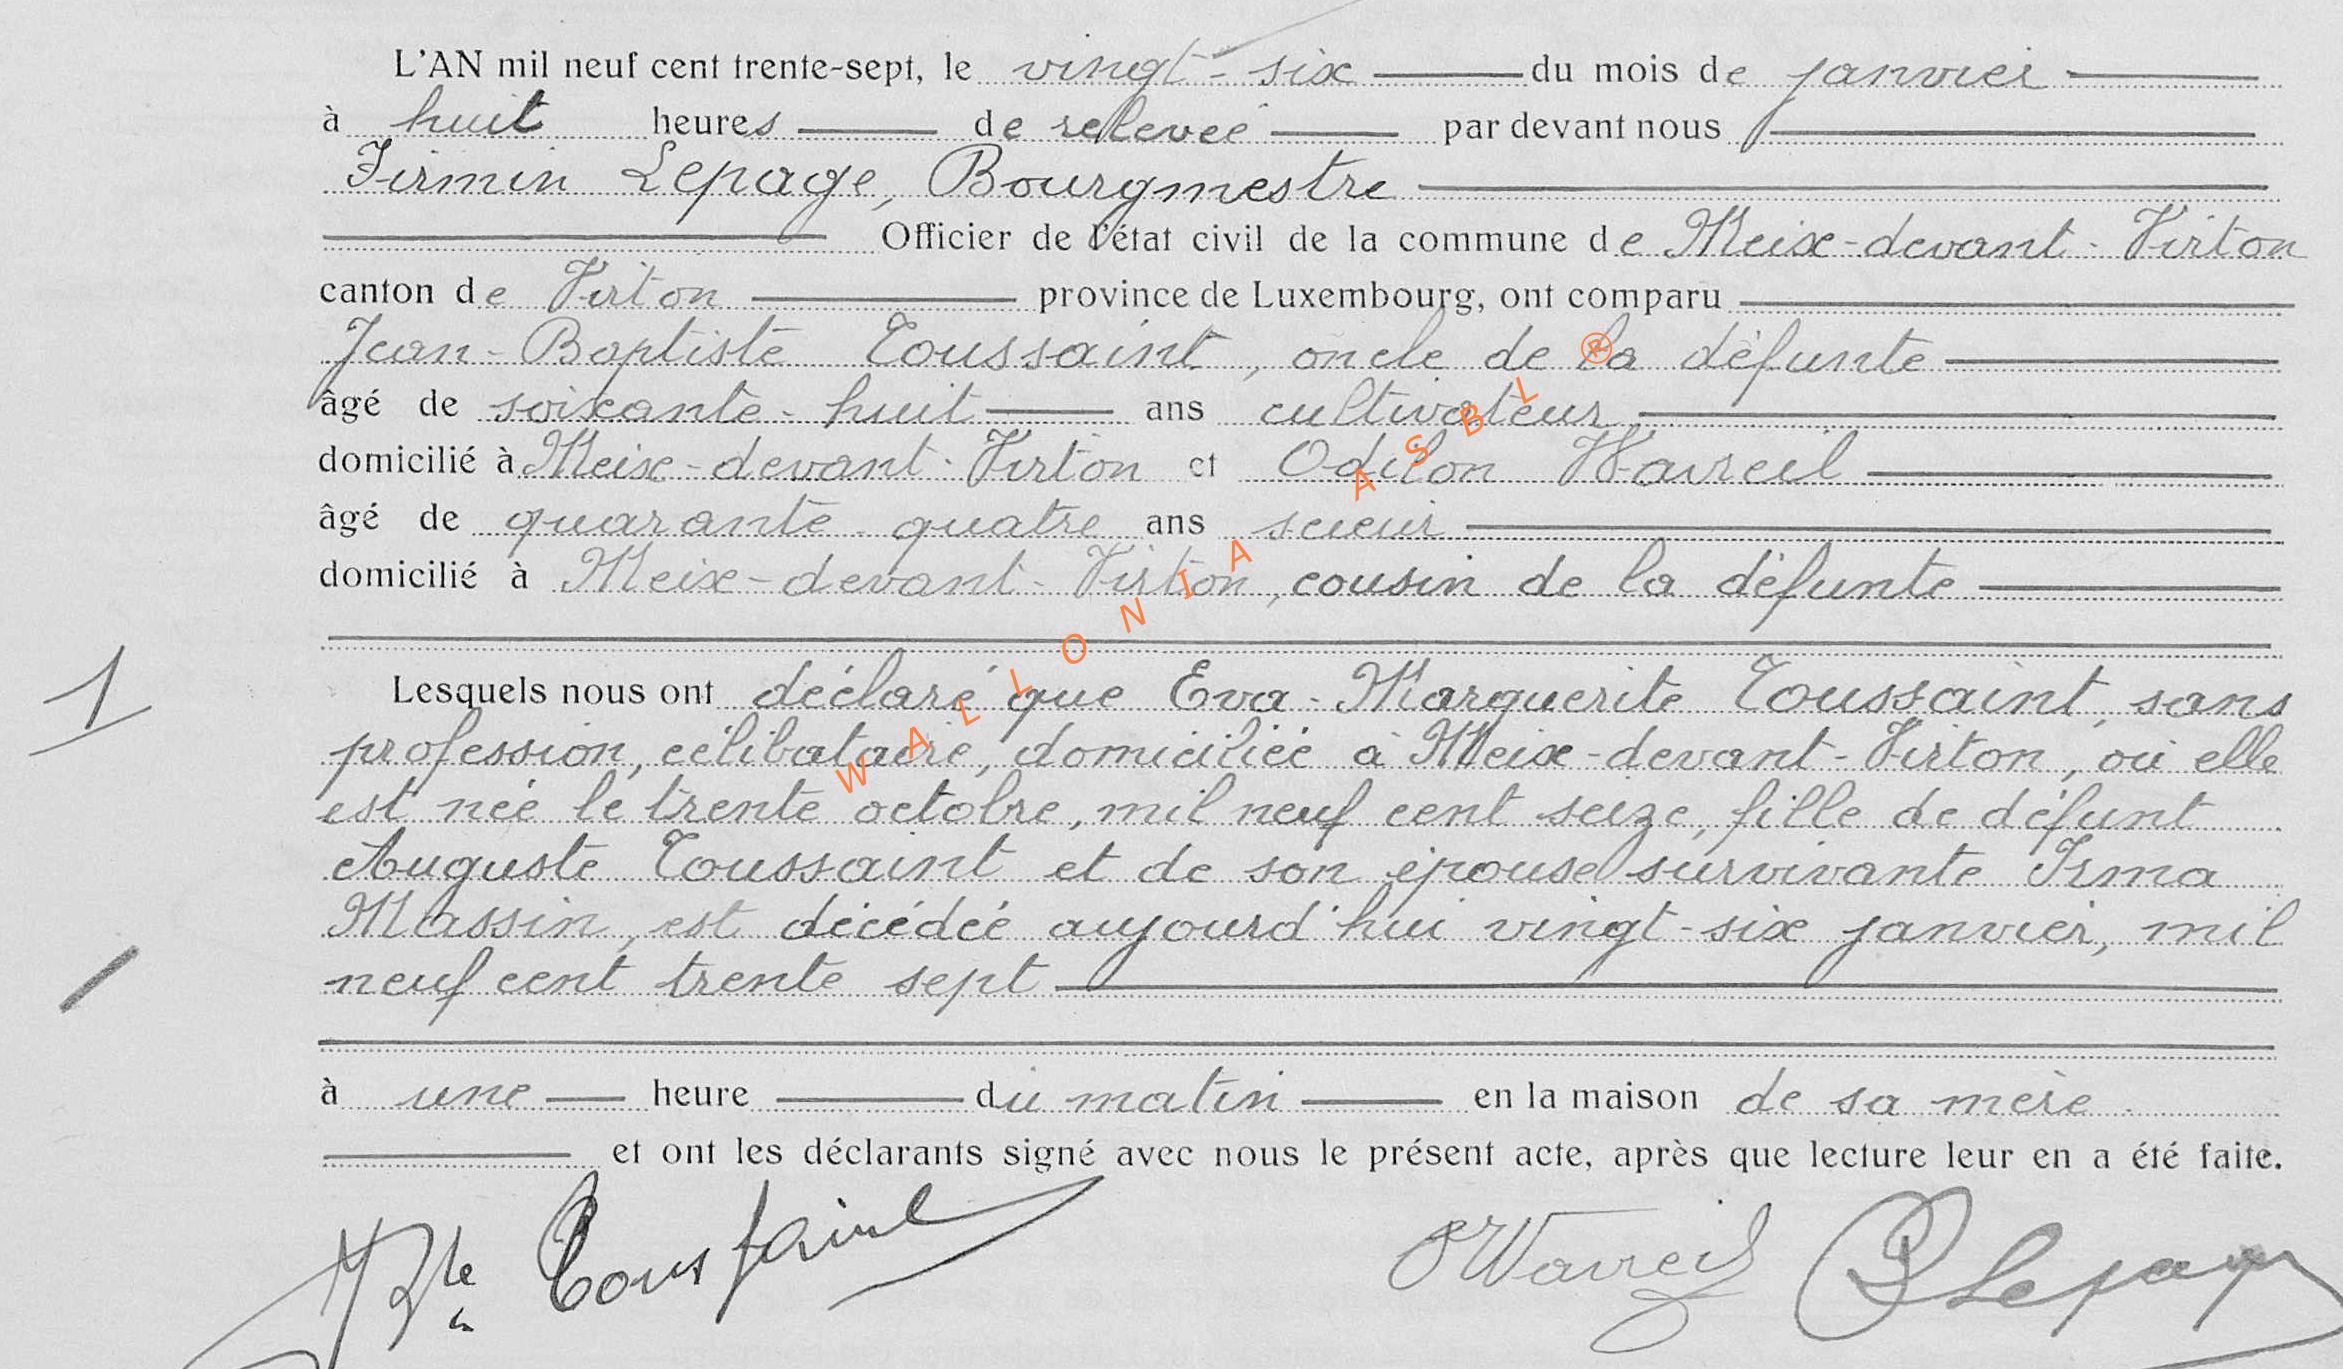 L'AN mil neuf cent trente-sept, le vingt-six du mois de janvier
à huit heures de relevée par devant nous
Firmin Lepage, Bourgmestre
Officier de l'état civil de la commune de Meix-devant-Virton
canton de Virton province de Luxembourg, ont comparu
Jean-Baptiste Toussaint, oncle de la défunte
âgé de soixante-huit ans cultivateur
domicilié à Meix-devant-Virton et Odilon Wavreil
âgé de quarante-quatre ans scieur
domicilié à Meix-devant-Virton, cousin de la défunte
1
Lesquels nous ont déclaré que Eva-Marguerite Toussaint, sans
profession, célibataire, domiciliée à Meix-devant-Virton, où elle
est née le trente octobre, mil neuf cent seize, fille de défunt
Auguste Toussaint et de son épouse survivante Irma
Massin, est décédée aujourd'hui vingt-six janvier, mil
neuf cent trente sept
à une heure du matin en la maison de sa mère
et ont les déclarants signé avec nous le présent acte, après que lecture leur en a été faite.
JBte Toussaint OWavreil Lepage
WALLONIA ASBL ®